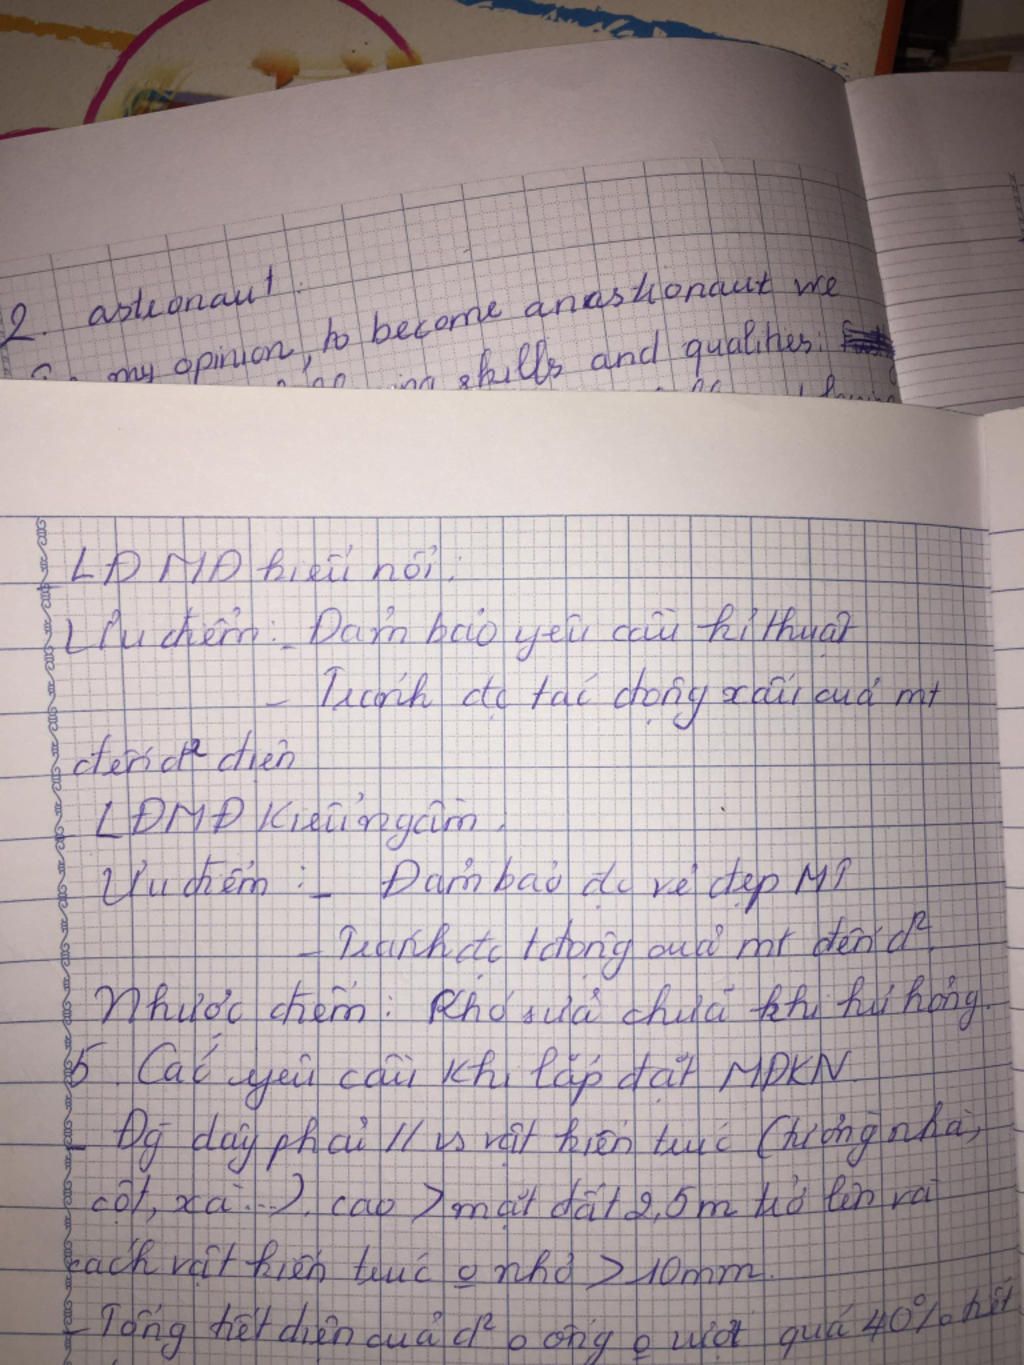 2. astronaut:
my opinion, to become an astronaut we
skills and qualities:
LĐMĐ kiểu nổi:
Ưu điểm: - Đảm bảo yêu cầu kĩ thuật
- Tránh đc tác động xấu của mt
đến d² điện
LĐMĐ Kiểu ngầm.
Ưu điểm: - Đảm bảo đc vẻ đẹp MT
- Tránh đc tđộng của mt đến d².
Nhược điểm: Khó sửa chữa khi hư hỏng.
5. Các yêu cầu khi lắp đặt MĐKN
- Đg dây phải // vs vật kiến trúc (tường nhà,
cột, xà...). cao > mặt đất 2,5m trở lên và
cách vật kiến trúc o nhỏ > 10mm.
- Tổng tiết diện của d² o ống o vượt quá 40% tiết